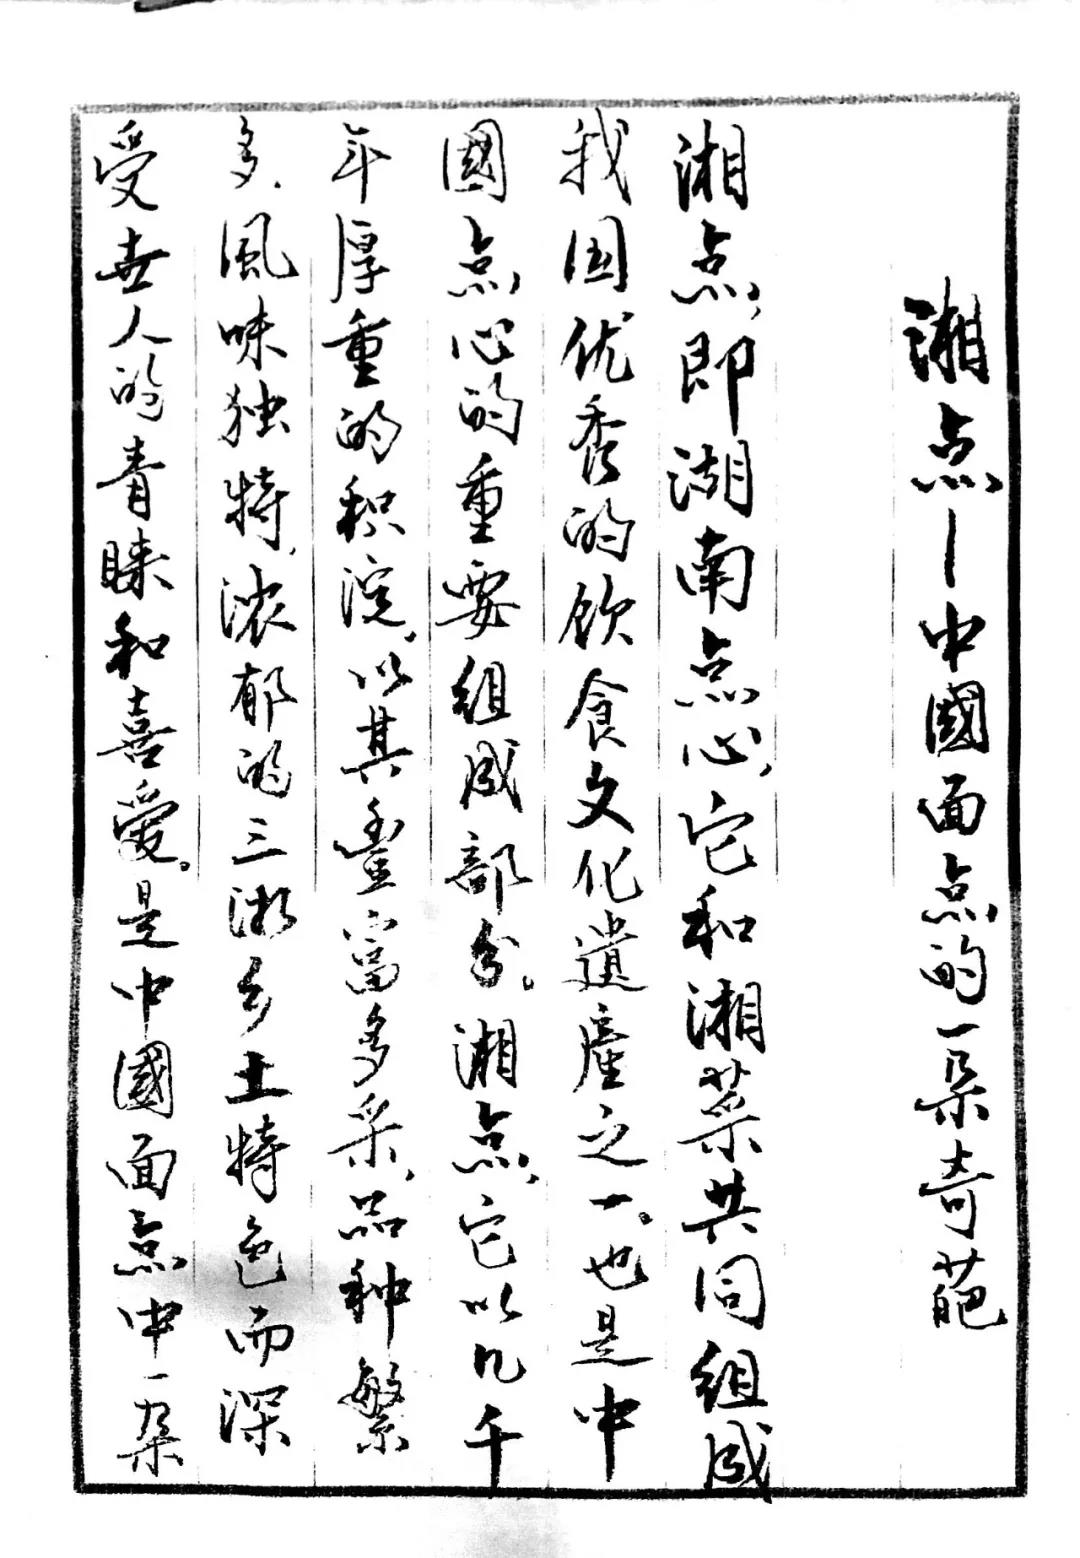 湘点—中國面点的一朵奇葩
湘点，即湖南点心，它和湘菜共同组成
我国优秀的饮食文化遺產之一。也是中
國点心的重要组成部分。湘点，它以几千
年厚重的积淀，以其豐富多采，品种繁
多，風味独特，浓郁的三湘乡土特色而深
受世人的青睐和喜愛。是中國面点中一朵